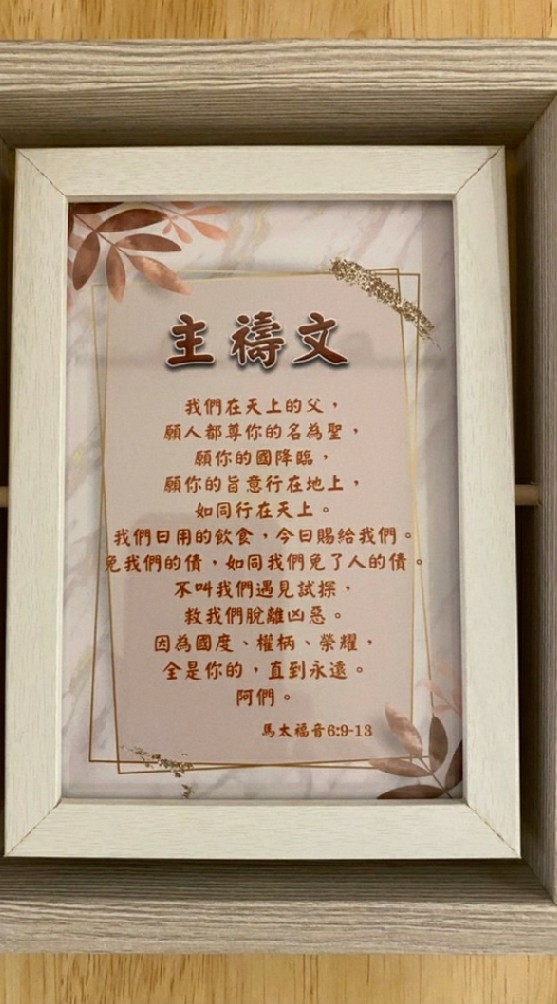 主禱文
我們在天上的父，
願人都尊你的名為聖，
願你的國降臨，
願你的旨意行在地上，
如同行在天上。
我們日用的飲食，今日賜給我們。
免我們的債，如同我們免了人的債。
不叫我們遇見試探，
救我們脫離凶惡。
因為國度、權柄、榮耀，
全是你的，直到永遠。
阿們。
馬太福音6:9-13